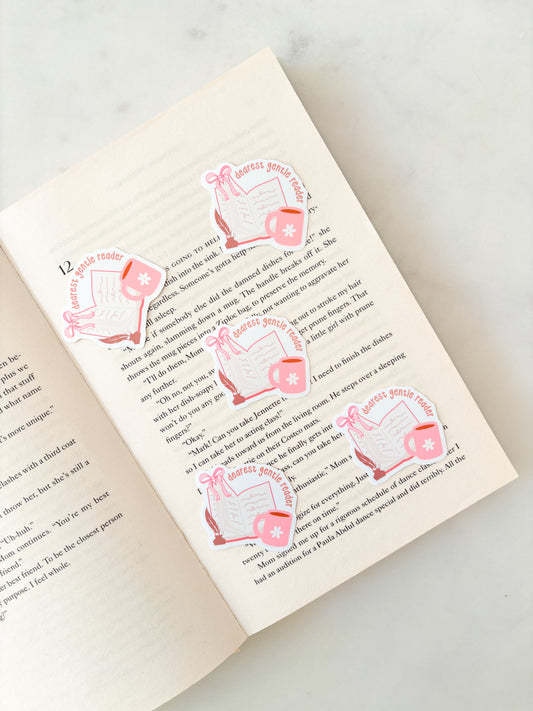 be-
plus we
that stuff
what name
more unique.”
lashes with a third coat
throw her, but she’s still a
“Uh-huh.”
continues. “You’re my best
friend.”
best friend. To be the closest person
purpose. I feel whole.
12
GOING TO HELL
dish into the sink, she
Someone’s gotta help
asleep.
if somebody else did the damned dishes for me!” she
shouts again, slamming down a mug. The handle breaks off it. She
throws the mug pieces into a Ziploc bag, to preserve the memory.
“I’ll do them, not wanting to aggravate her
any further.
“Oh no, not you, out to smoke my hair
with her dish-soapy get prune fingers. That
won’t do you any a little girl with prune
fingers?”
“Okay.”
“Mark! Can you take Jennette I need to finish the dishes
so I can take her to acting class!”
toward us from the living room. He steps over a sleeping
on their Costco mats.
he finally gets
can you take her
Mom
for everything. Just
twenty there on time.”
Mom signed me up for a rigorous schedule of dance classes I
had an audition for a Paula Abdul dance special and did terribly. All the
dearest gentle reader
dearest gentle reader
dearest gentle reader
dearest gentle reader
dearest gentle reader